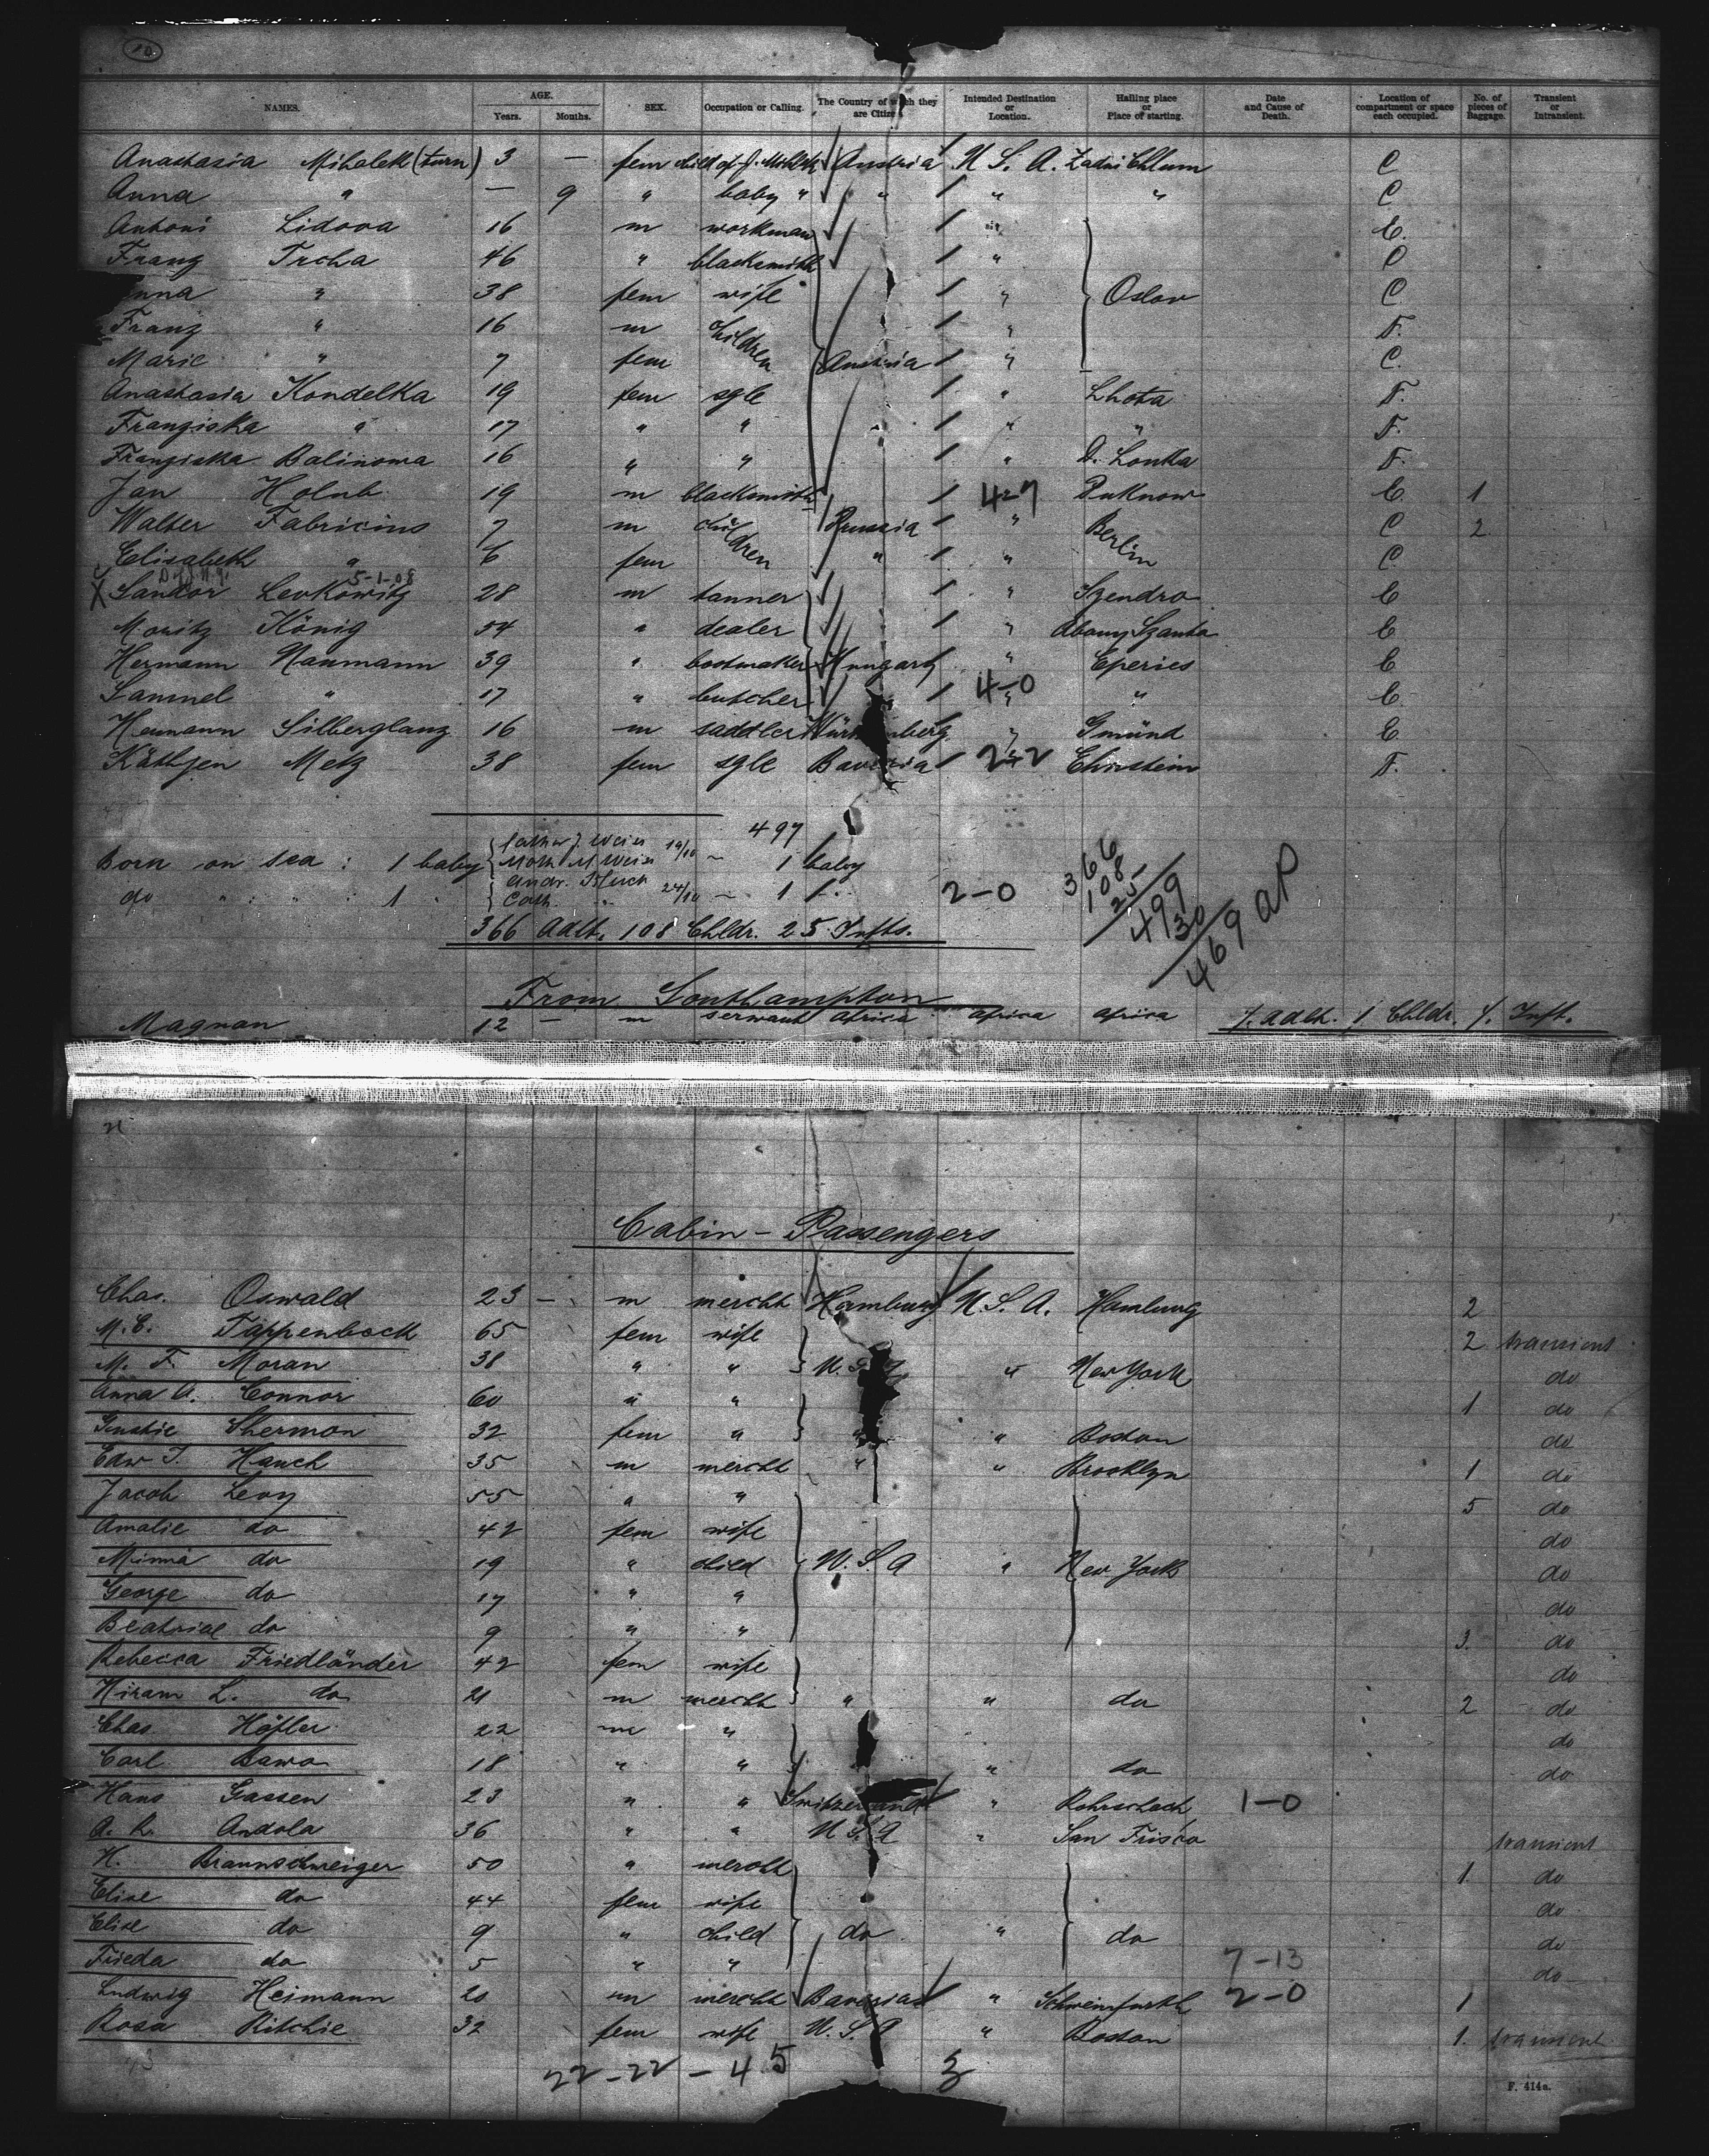 10.
NAMES. AGE. Years. Months. SEX. Occupation or Calling. The Country of which they are Citizens Intended Destination or Location. Hailing place or Place of starting. Date and Cause of Death. Location of compartment or space each occupied. No. of pieces of Baggage. Transient or Intransient.
Anastasia Mihalek (turn) 3 — fem child of J. Mihalek Austria U. S. A. Zadni Chlum C
Anna " — 9 " baby " " " " C
Antoni Lidova 16 m workman " C.
Franz Trcha 46 " blacksmith " C
Anna " 38 fem wife " Oslov C
Franz " 16 m children " F.
Marie " 7 fem Austria " C.
Anastasia Kondelka 19 fem sgle " Lhota F.
Franziska " 17 " " " " F.
Franziska Balinowa 16 " " " D. Lonka F.
Jan Holub 19 m blacksmith 4-7 Puknow C. 1
Walter Fabricius 7 m children Russia " Berlin C 2
Elisabeth " 6 fem " " C
5-1-08
X Sandor Levkowitz 28 m tanner " Szendro C
Moritz König 54 " dealer " Abany Szanto C
Hermann Naumann 39 " bootmaker Hungary " Eperies C
Samuel " 17 " butcher 4-0 " " C.
Hermann Silberglanz 16 m saddler Würtemberg " Gmünd C
Käthjen Metz 38 fem sgle Bavaria 2-2 F.
497
Born on sea : 1 baby { Father J. Weiss Moth M. Weiss 19/10 — 1 baby
do " : " " 1 " { Andr. Cath. " 24/10 — 1 2-0
366 Adlt. 108 Chldr. 25 Infts.
366
108
25
499
30
469 AP
From Southampton
Magnan 12 — m servant Africa Africa Africa /. Adlt. 1 Chldr. /. Inft.
Cabin - Passengers
Chas. Oswald 23 — m mercht Hamburg U. S. A. Hamburg 2
M. C. Tappenbeck 65 fem wife 2 transient
M. F. Moran 38 " " U. S. " New York do
Anna A. Connor 60 " " 1 do
Gustie Shermon 32 fem " " " Boston do
Edw J. Hauch 35 m mercht " " Brooklyn 1 do
Jacob Levy 55 " " 5 do
Amalie do 42 fem wife do
Minna do 19 " child U. S. A " New York do
George do 17 " " do
Beatrice do 9 " " 3. do
Rebecca Friedländer 42 fem wife do
Hiram L. do 21 m mercht " " do 2 do
Chas. Höfler 22 m " do
Carl Bawo 18 " " " do do
Hans Gassen 23 " " Switzerland " Rohrschach 1-0
A. R. Andola 36 " " U. S. A " San Frisco transient
H. Braunschweiger 50 " mercht 1. do
Elise do 44 fem wife do
Elise do 9 " child do " do do
Frieda do 5 " " 7-13 do
Ludwig Heimann 20 m mercht Bavaria " Schweinfurth 2-0 1
Rosa Ritchie 32 fem wife U. S. A " Boston 1. transient
22-22-45 3
F. 414a.